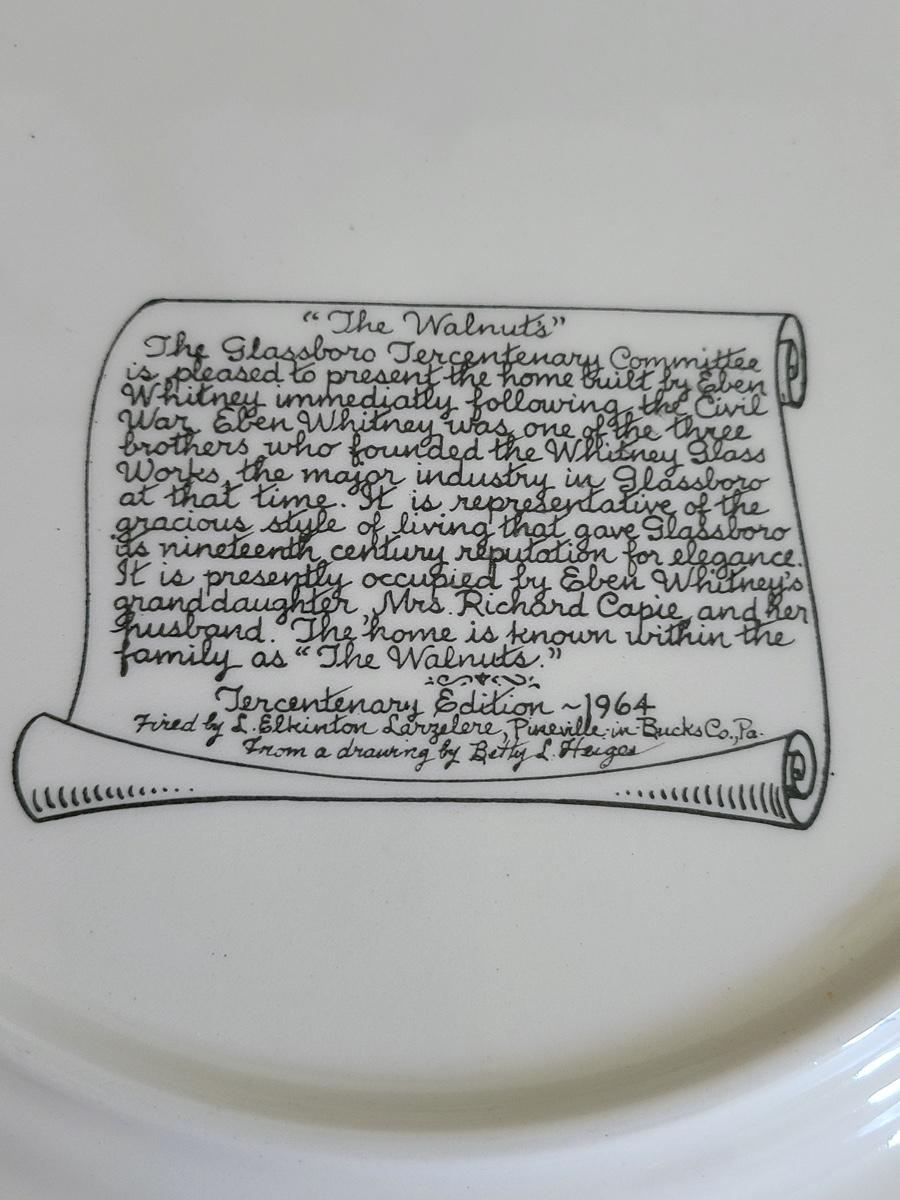 "The Walnuts"
The Glassboro Tercentenary Committee
is pleased to present the home built by Eben
Whitney immediatly following the Civil
War. Eben Whitney was one of the three
brothers who founded the Whitney Glass
Works, the major industry in Glassboro
at that time. It is representative of the
gracious style of living that gave Glassboro
its nineteenth century reputation for elegance.
It is presently occupied by Eben Whitney's
granddaughter, Mrs. Richard Capie, and her
husband. The home is known within the
family as "The Walnuts."
Tercentenary Edition ~ 1964
Fired by L. Elkinton Larzelere, Pineville-in-Bucks Co., Pa.
From a drawing by Betty L. Heiges